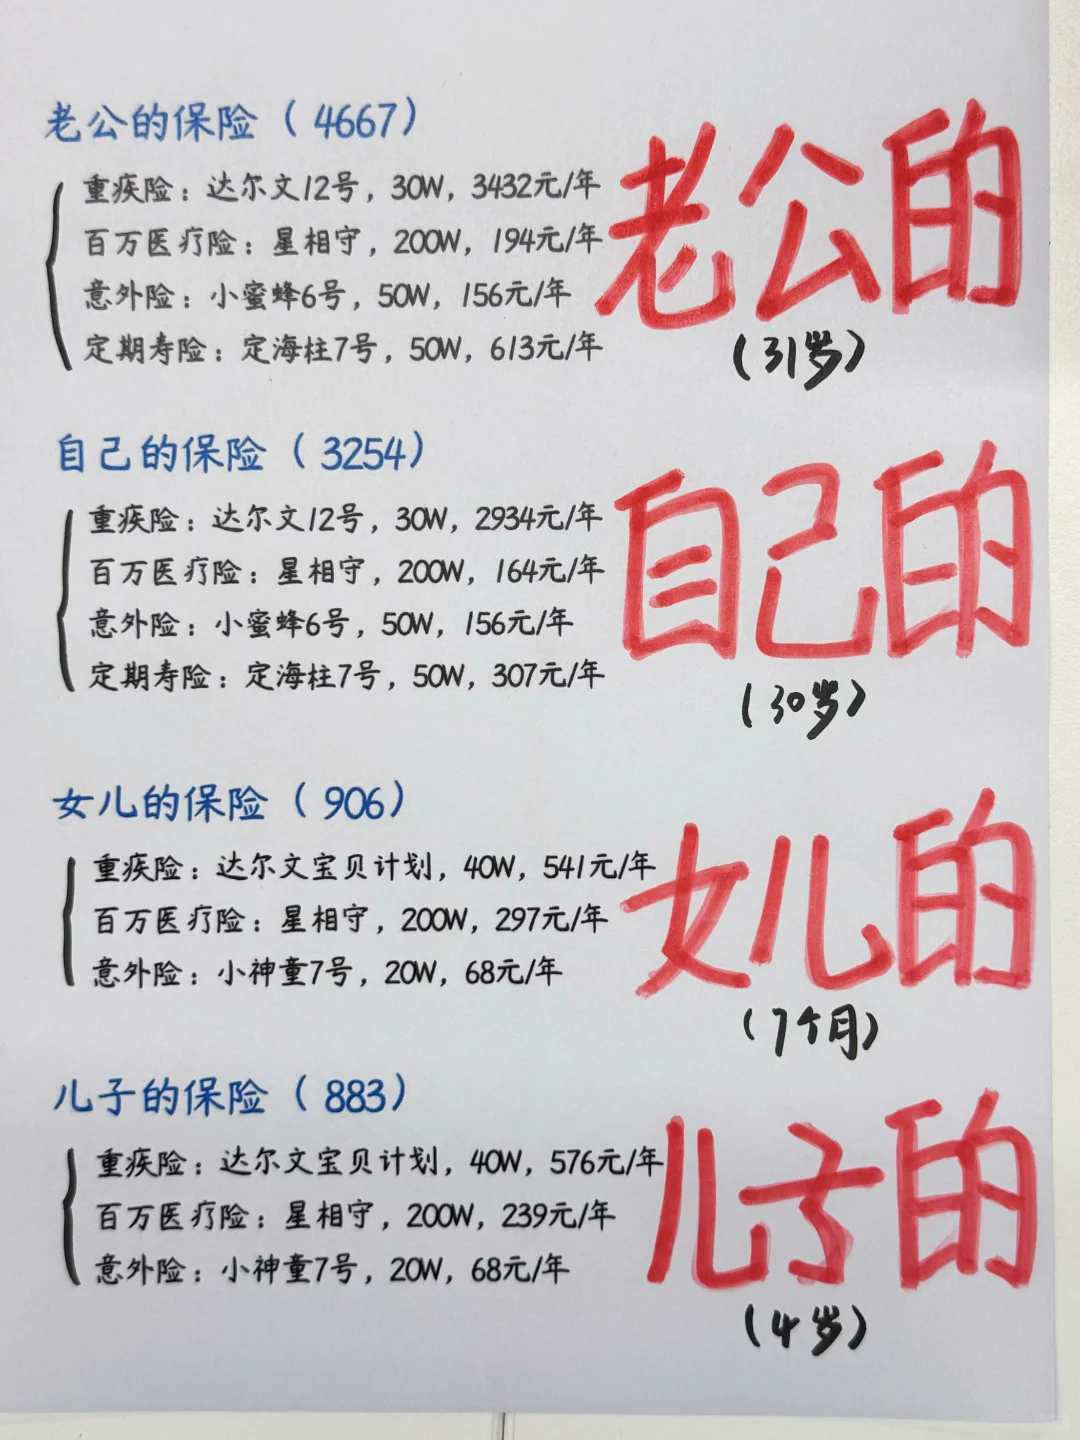 老公的保险（4667）
重疾险：达尔文12号，30W，3432元/年
百万医疗险：星相守，200W，194元/年
意外险：小蜜蜂6号，50W，156元/年
定期寿险：定海柱7号，50W，613元/年
老公的
（31岁）
自己的保险（3254）
重疾险：达尔文12号，30W，2934元/年
百万医疗险：星相守，200W，164元/年
意外险：小蜜蜂6号，50W，156元/年
定期寿险：定海柱7号，50W，307元/年
自己的
（30岁）
女儿的保险（906）
重疾险：达尔文宝贝计划，40W，541元/年
百万医疗险：星相守，200W，297元/年
意外险：小神童7号，20W，68元/年
女儿的
（7个月）
儿子的保险（883）
重疾险：达尔文宝贝计划，40W，576元/年
百万医疗险：星相守，200W，239元/年
意外险：小神童7号，20W，68元/年
儿子的
（4岁）